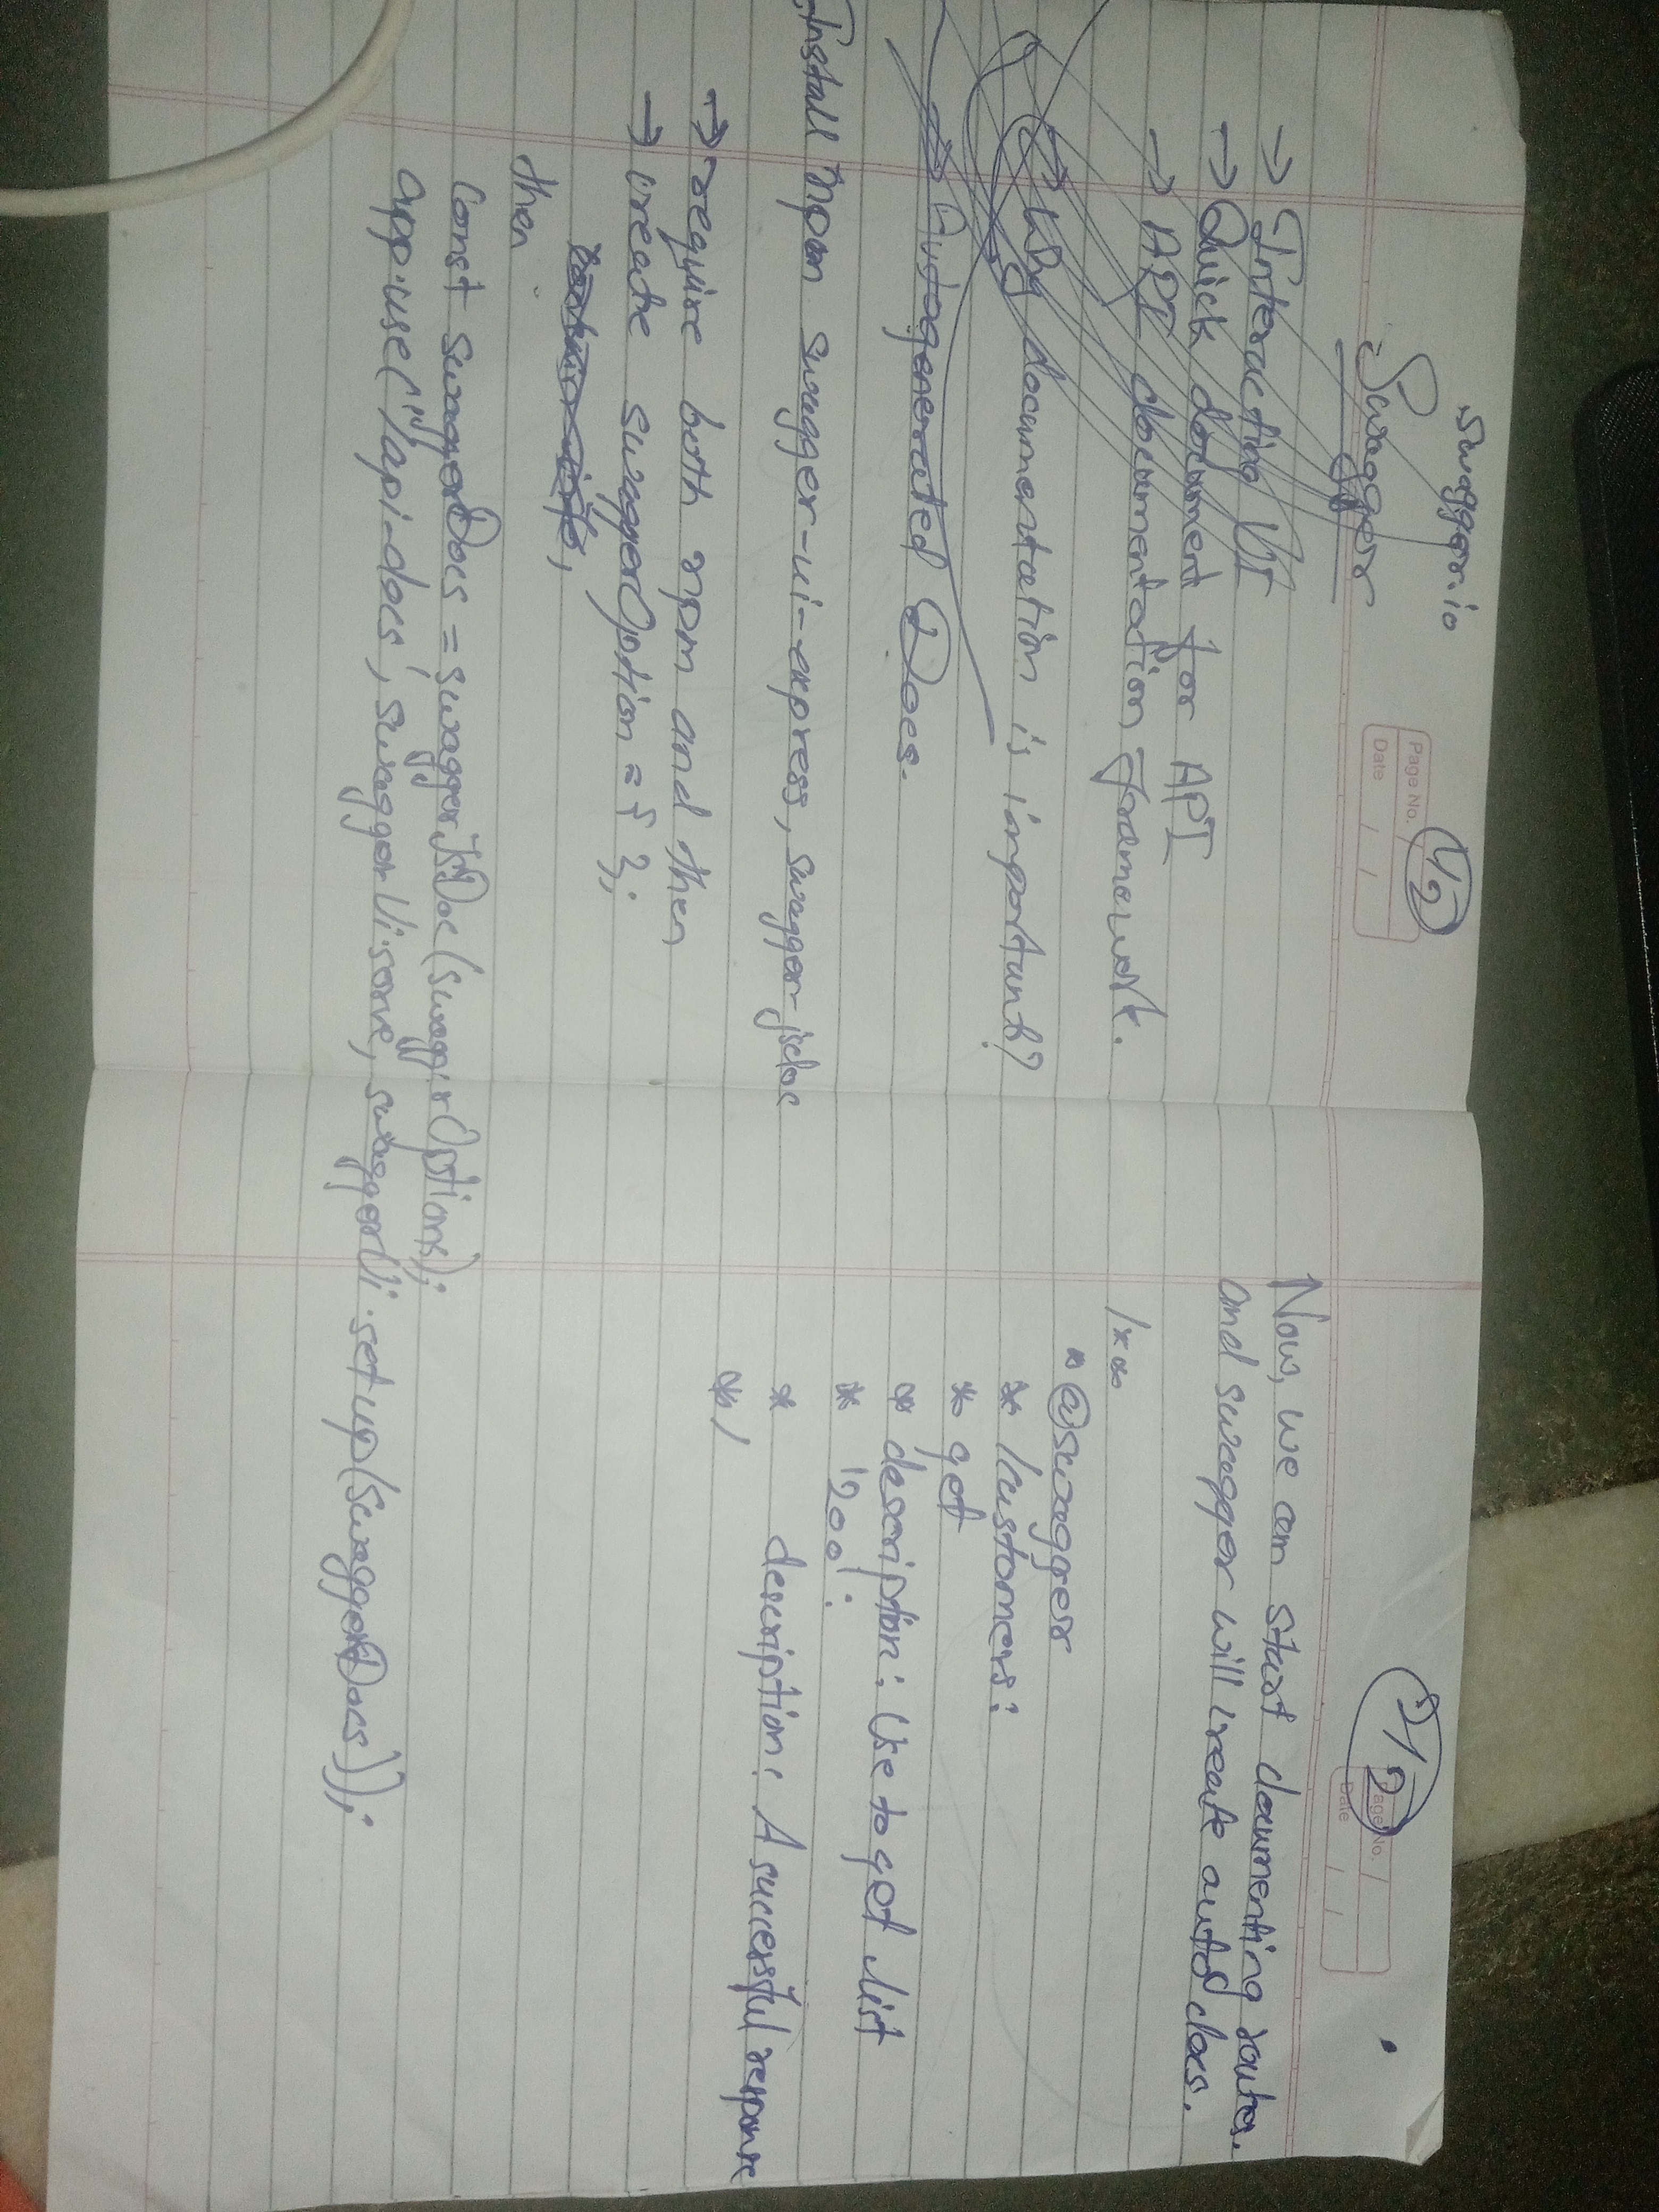 swagger.io
1/2
Page No.
Date
Swagger
→ Interacting UI
→ Quick document for API
→ API documentation framework.
→ Why documentation is important?
→ Autogenerated Docs.
Install npm swagger-ui-express, swagger-jsdoc
→ require both npm and then
→ create swaggerOption = { };
then
const swaggerDocs = swaggerJsDoc(swaggerOptions);
app.use("/api-docs', swaggerUi.serve, swaggerUi.setup(swaggerDocs));
2/2
Page No.
Date
Now, we can start documenting routes.
and swagger will create auto docs.
/**
* @swagger
* /customers:
* get
* description: Use to get list
* '200':
* description: A successful response
*/